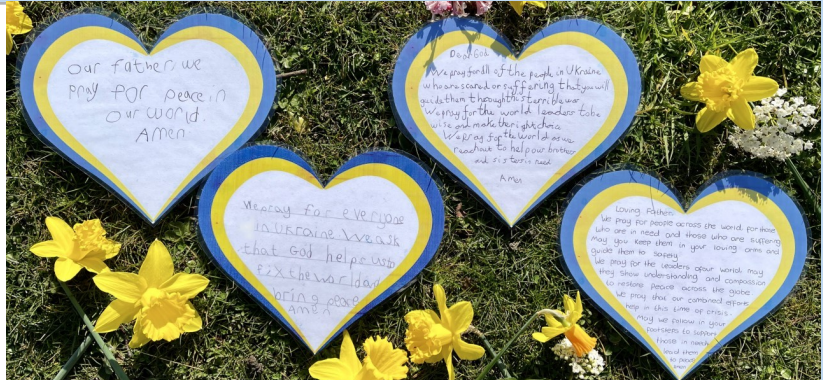 Our father we
pray for peace in
our world.
Amen
Dear God
We pray for all of the people in Ukraine
who are scared or suffering that you will
guide them through this terrible war
We pray for the world leaders to be
wise and make the right choice
We pray for the world as we
reach out to help our brother
and sister in need
Amen
We pray for everyone
in Ukraine We ask
that God helps us to
fix the world and
bring peace
Amen
Loving Father,
We pray for people across the world, for those
who are in need and those who are suffering
May you keep them in your loving arms and
guide them to safety
We pray for the leaders of our world, may
they show understanding and compassion
to restore peace across the globe
We pray that our combined efforts
help in this time of crisis.
May we follow in your
footsteps to support
those in need,
lead them
to peace
Amen